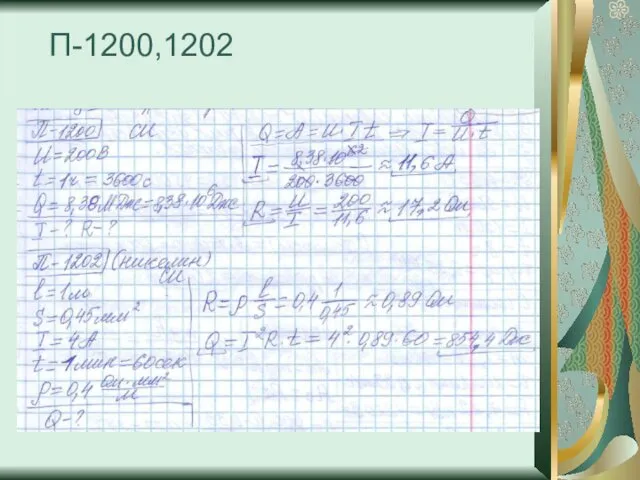 П-1200,1202
П-1200 СИ
U=200В
t=1ч=3600с
Q=8,38МДж=8,38·10⁶Дж
I-? R-?
Q=A=U·I t ⇒ I=Q/U·t
I=8,38·10⁶/200·3600≈11,6А
R=U/I=200/11,6≈17,2Ом
П-1202 (никелин)
СИ
l=1м
S=0,45мм²
I=4А
t=1мин=60сек
ρ=0,4 Ом·мм²/м
Q-?
R=ρ l/S=0,4 1/0,45≈0,89Ом
Q=I²R·t=4²·0,89·60=854,4Дж